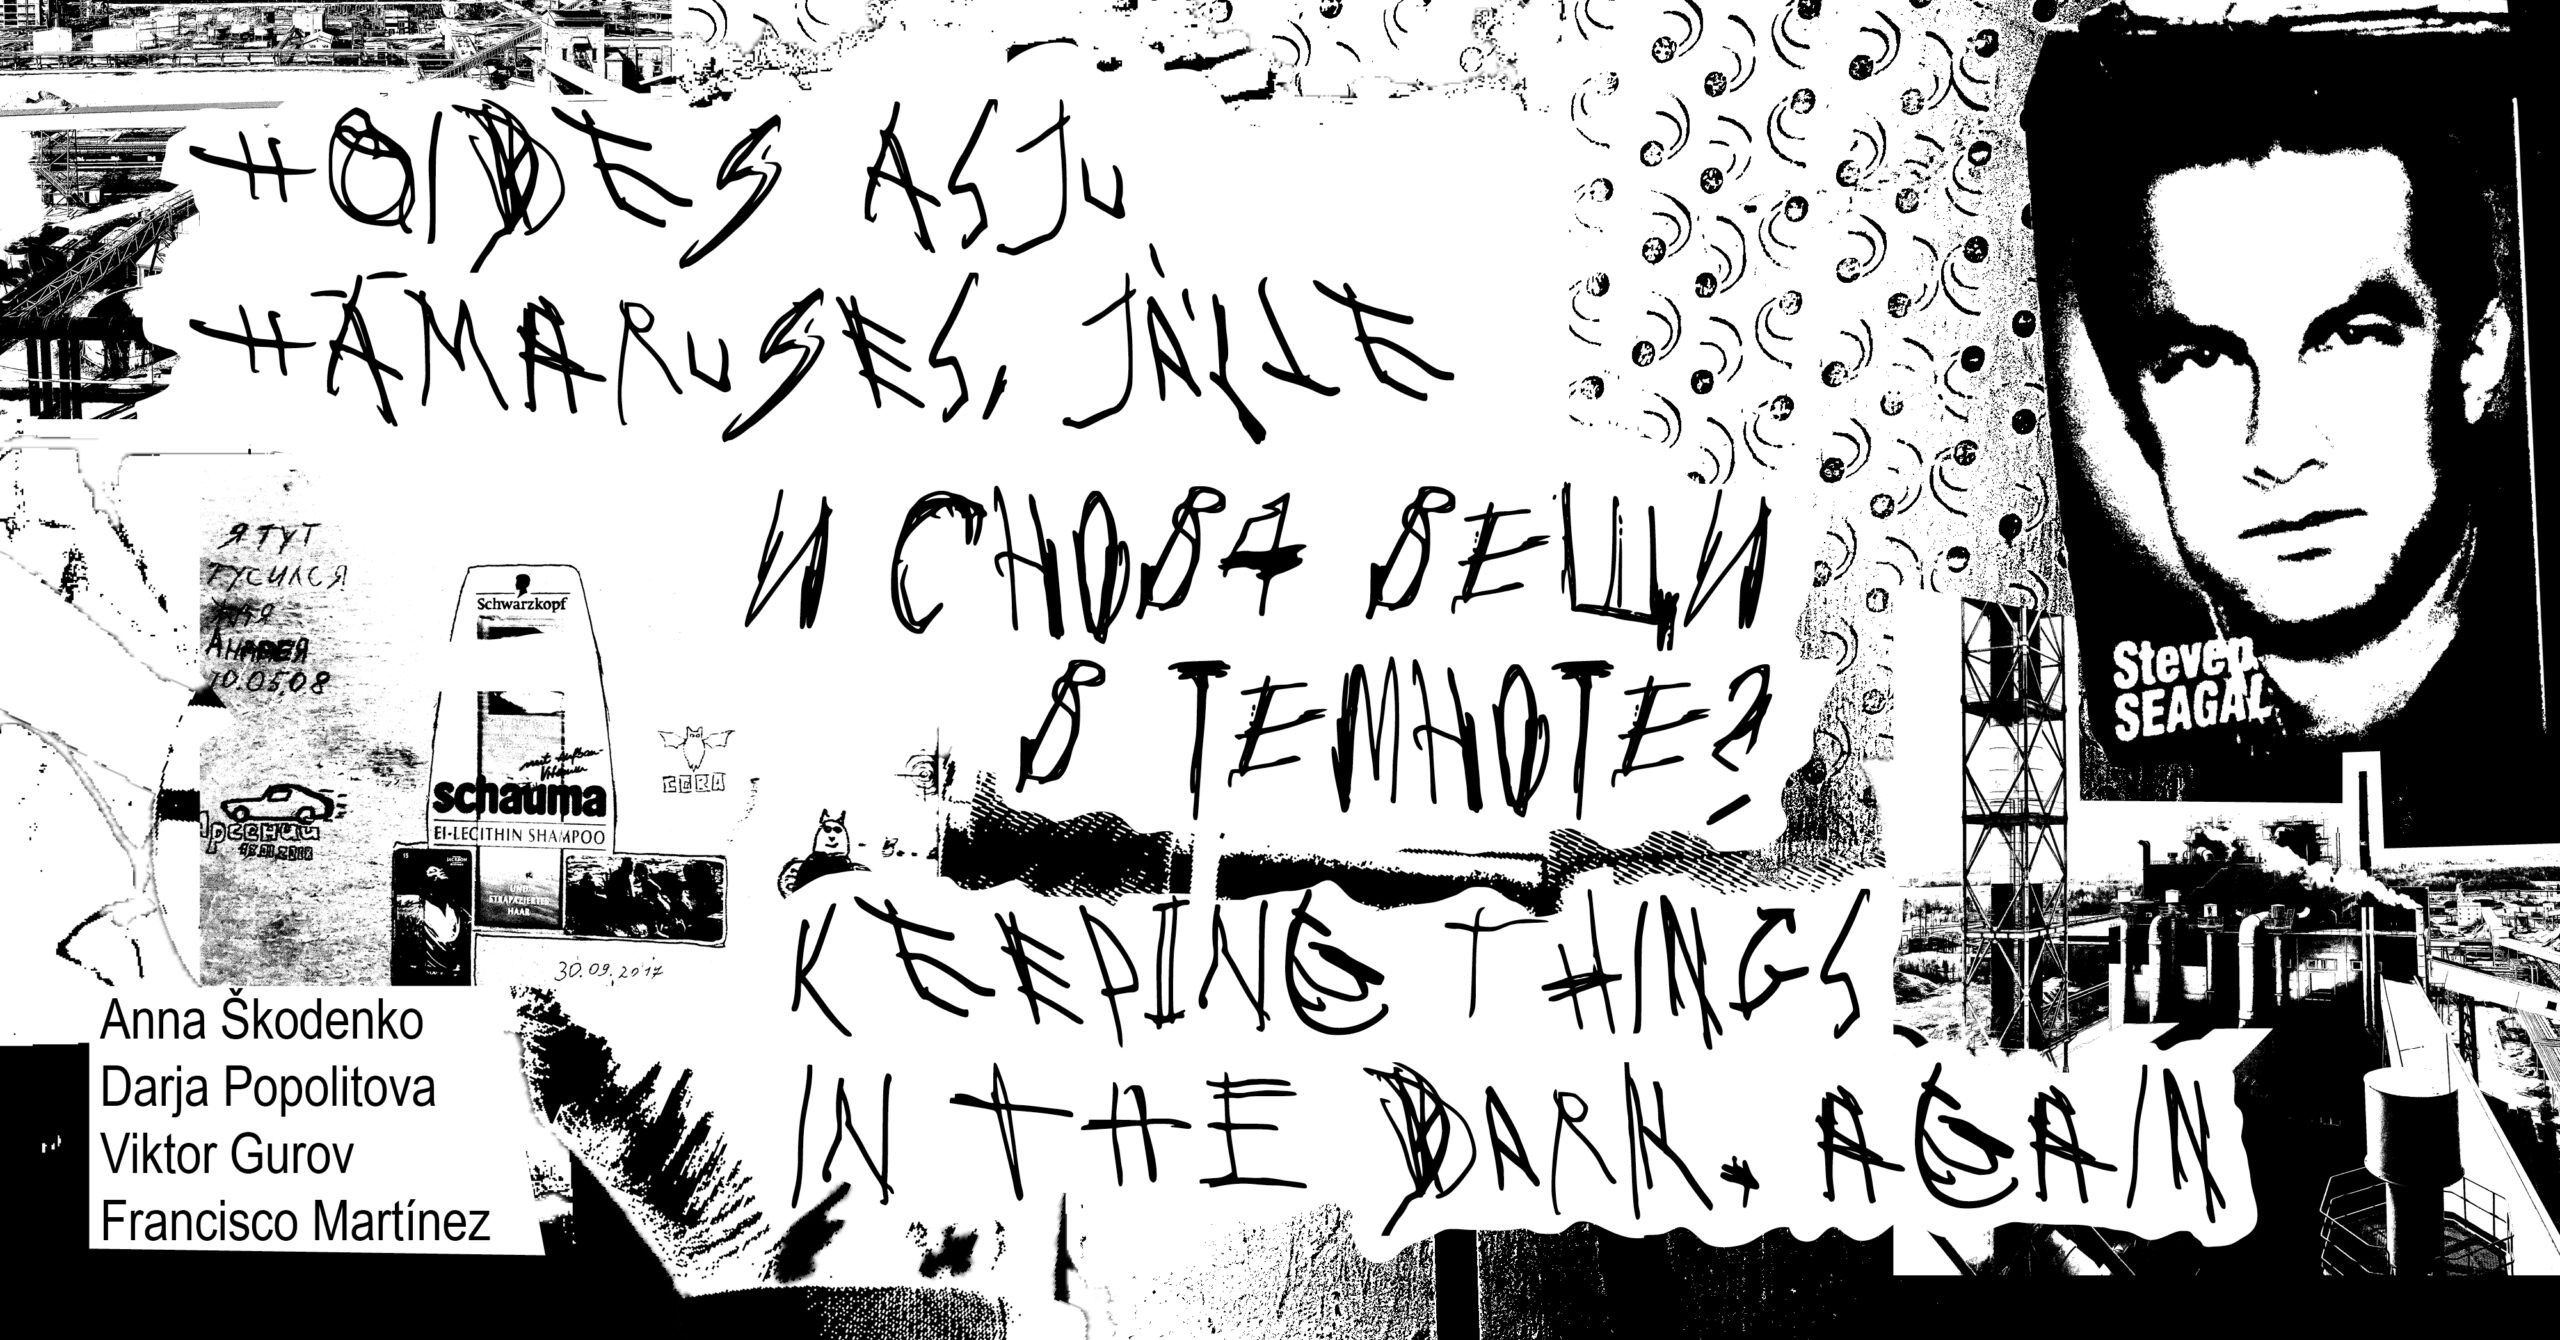 HOIDES ASJU
HÄMARUSES, JÄLLE
И СНОВА ВЕЩИ
В ТЕМНОТЕ?
KEEPING THINGS
IN THE DARK. AGAIN
Steven
SEAGAL
Я ТУТ
ТУСИЛСЯ
АНДРЕЯ
10.05.08
Арсений
Schwarzkopf
mit Aufbau-
Vitaminen
schauma
EI-LECITHIN SHAMPOO
UND
STRAPAZIERTES
HAAR
30.09.2017
Anna Škodenko
Darja Popolitova
Viktor Gurov
Francisco Martínez